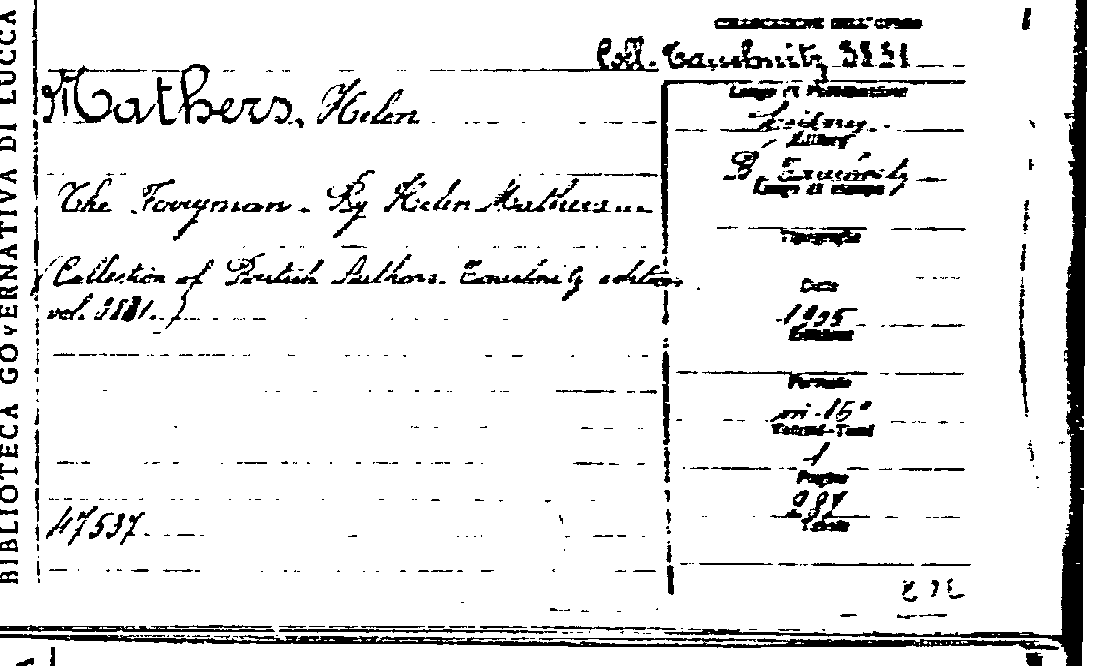 BIBLIOTECA GOVERNATIVA DI LUCCA
COLLOCAZIONE DELL'OPERA
Coll. Tauchnitz 3831
Mathers, Helen
The Ferryman. By Helen Mathers
(Collection of British Authors. Tauchnitz edition
vol. 3831.)
47537
Luogo di Pubblicazione
Leipzig
Editore
B. Tauchnitz
Luogo di stampa
Tipografia
Data
1905
Edizione
Formato
in-16°
Volumi-Tomi
1
Pagine
287
Tavole